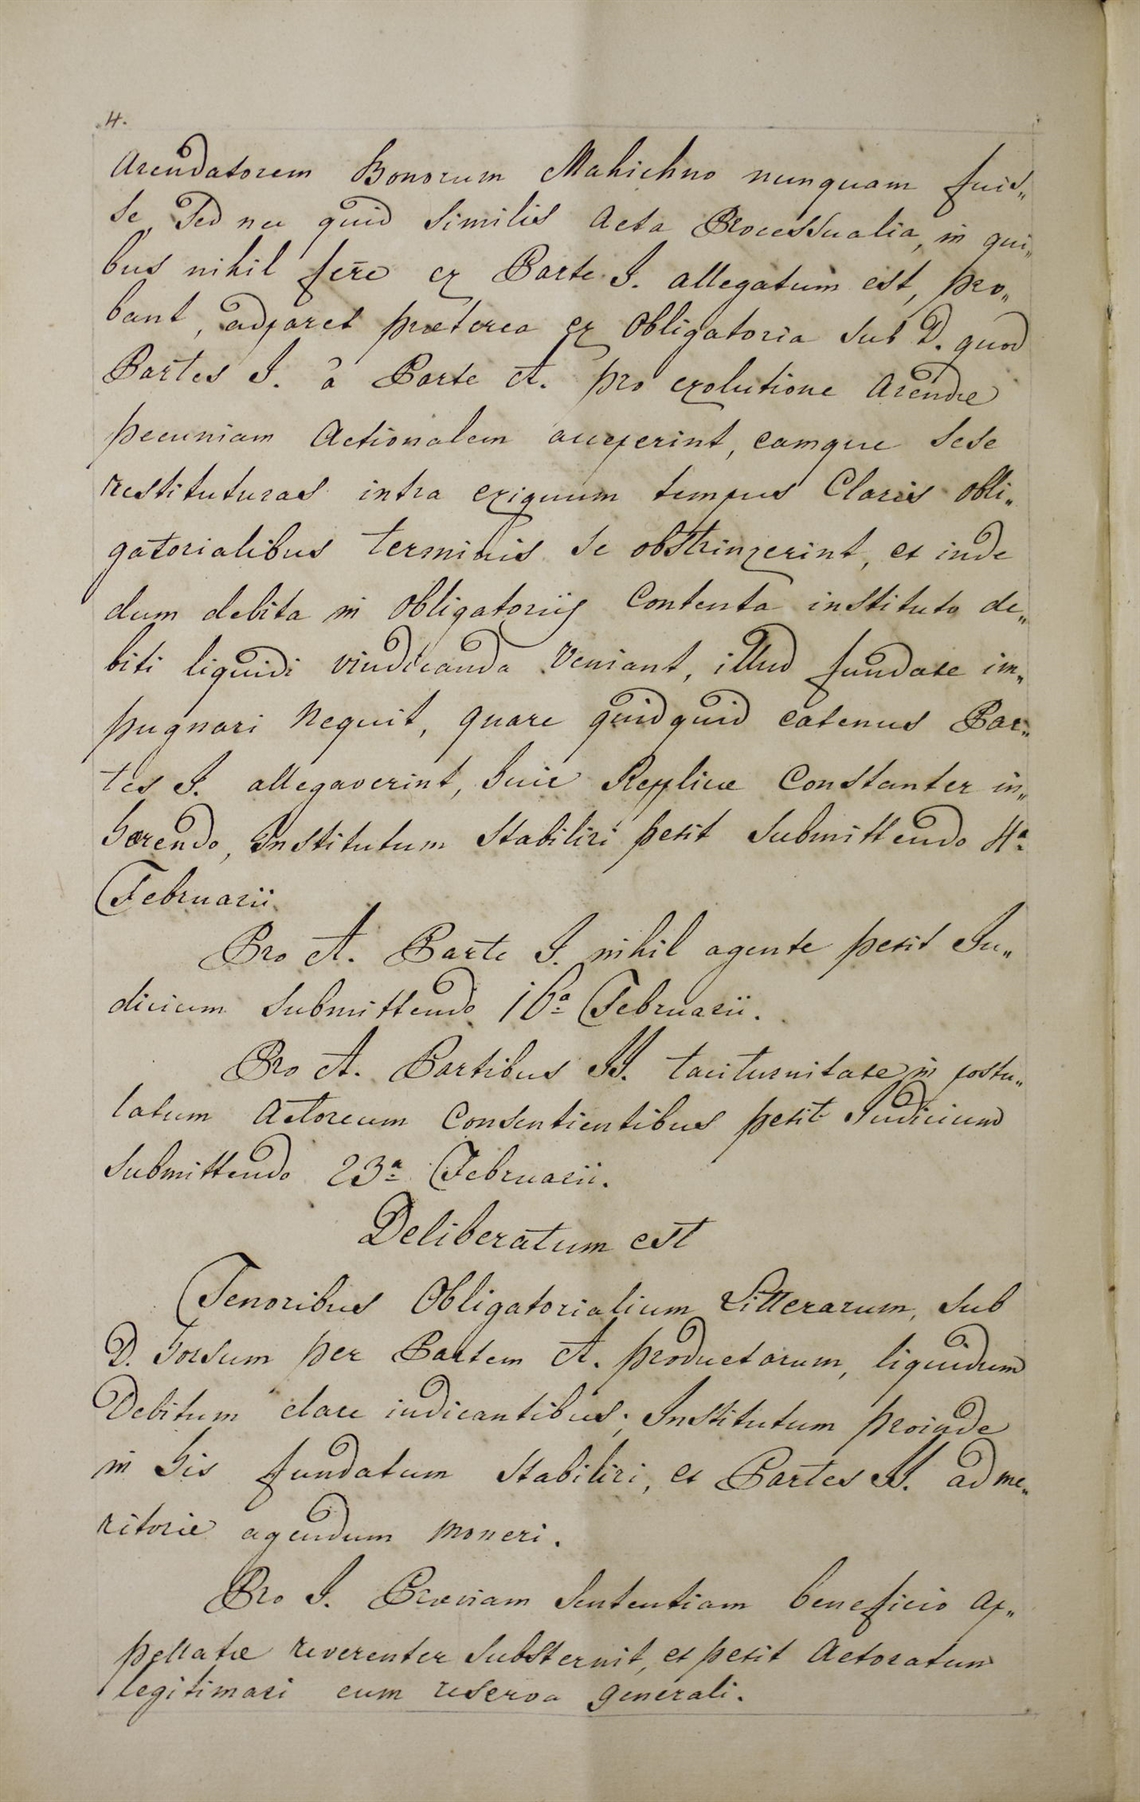 4.
Arendatorem Bonorum Mahichno nunquam fuis„
se, Sed nec quid similis Acta Processualia, in qui„
bus nihil fere ex Parte I. allegatum est, pro„
bant, adparet præterea ex Obligatoria sub D. quod
Partes I. à Parte A. pro exolutione Arendæ
pecuniam Actionalem acceperint, eamque sese
restituturas intra exiguum tempus Claris obli„
gatorialibus terminis se obstrinxerint, et inde
dum debita in Obligatoriis Contenta instituto de„
biti liquidi vindicanda Veniant, illud fundate im„
pugnari Nequit, quare quidquid eatenus Par„
tes I. allegaverint, Suie Replicæ Constanter in„
hærendo, Institutum Stabiliri petit Submittendo 4a
Februarii.
Pro A. Parte I. nihil agente petit Iu„
dicium Submittendo 16a Februarii.
Pro A. Partibus II. taciturnitate in postu„
latum Actoreum Consentientibus petit Iudicium
Submittendo 23a Februarii.
Deliberatum est
Tenoribus Obligatorialium Litterarum, sub
D. horsum per Partem A. productarum, liquidum
Debitum clare indicantibus; Institutum proinde
in his fundatum Stabiliri, et Partes II. ad me„
ritorie agendum moneri.
Pro I. Præviam Sententiam beneficio Ap„
pellatæ reverenter Substernit, et petit Actoratum
legitimari cum reserva generali.